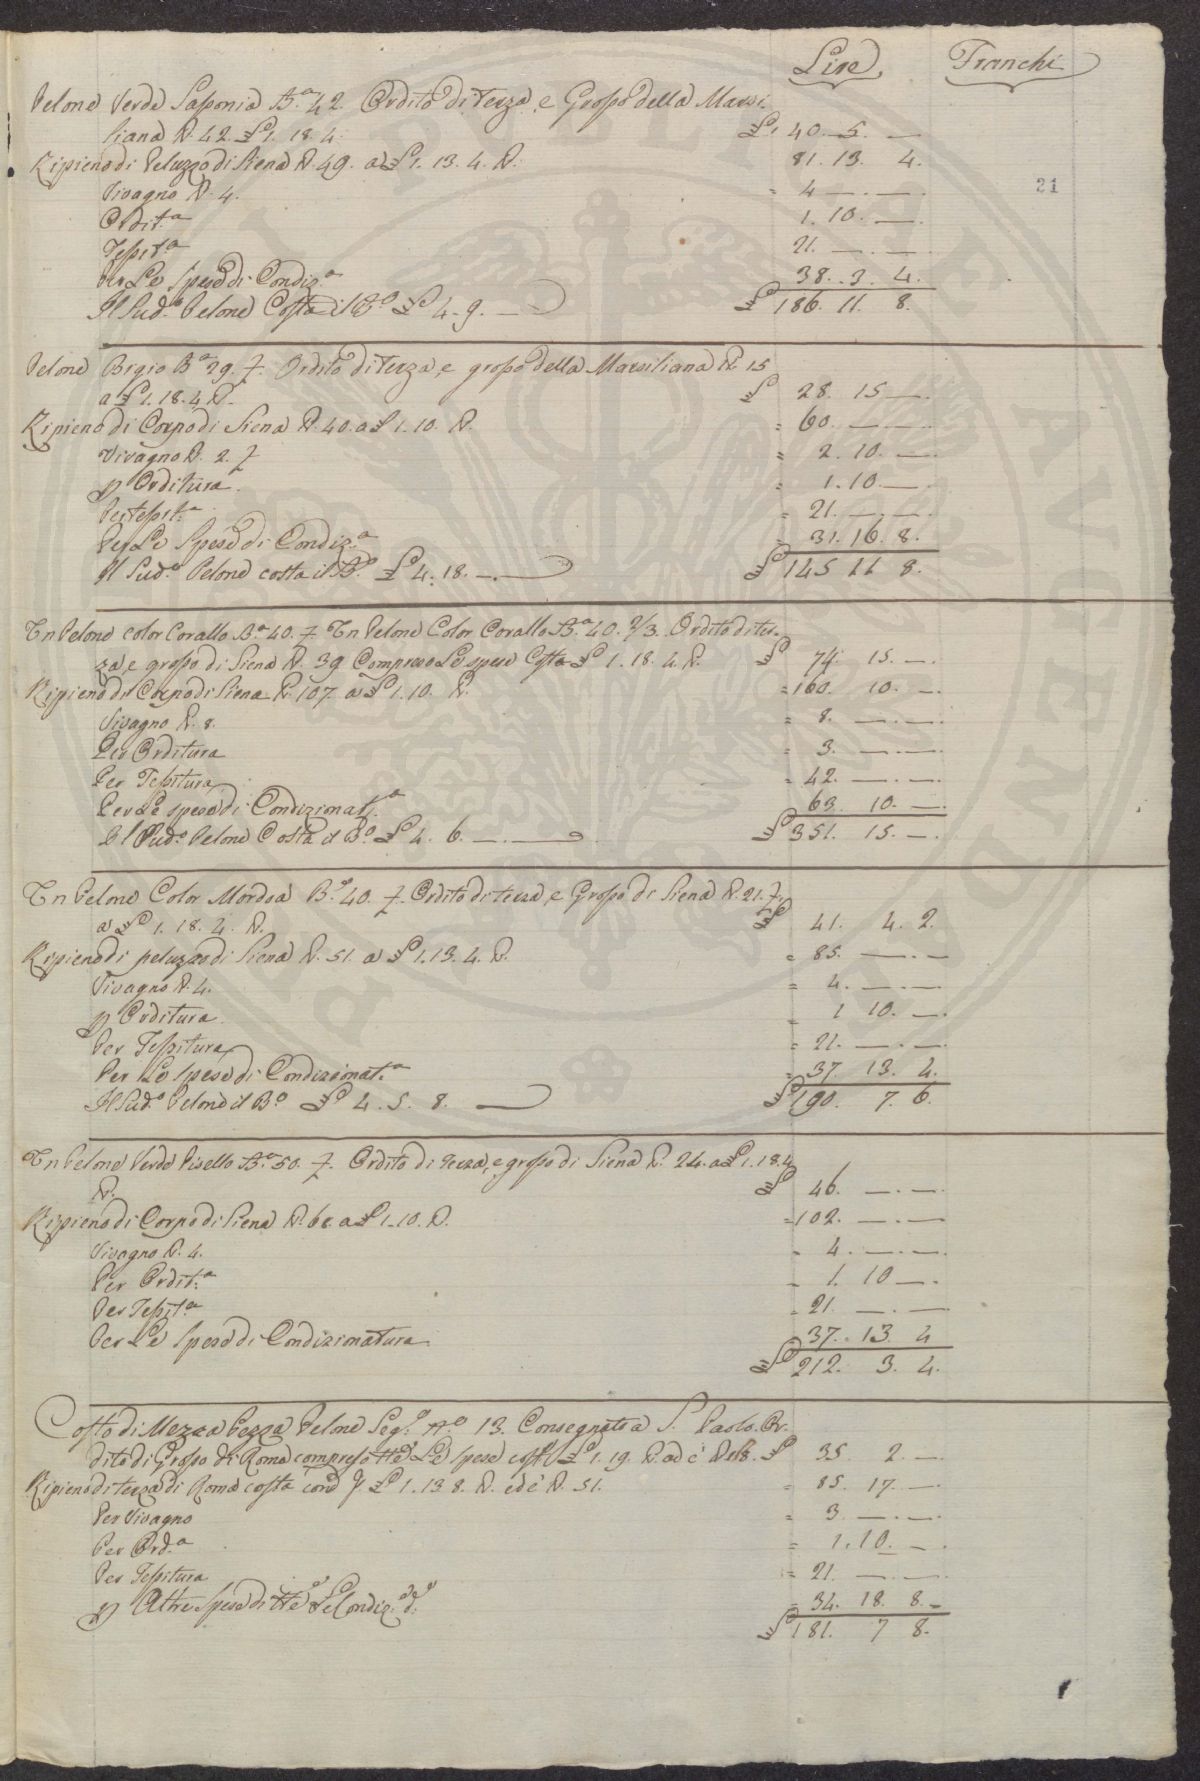 Lire Franchi
Pelone Verde Saponia B.a 42. Ordito di Terza, e Grosso della Marsi
liana ℔. 42. £ 1. 18. 4. £ 40. 5. —
Ripieno di Peluzzo di Siena ℔. 49. a £ 1. 13. 4. ℔. 81. 13. 4.
Vivagno ℔. 4. = 4 —. —.
Ordit.a 1. 10. —.
Tessit.a 21. —. —.
Per Le Spese di Condiz.a 38. 3. 4.
Il Sud.o Pelone Costa il B.o £ 4. 9. — £ 186. 11. 8.
21
Pelone Bigio B.a 29. ½. Ordito di Terza, e grosso della Marsiliana ℔. 15
a £ 1. 18. 4 ℔. £ 28. 15 —.
Ripieno di Corpo di Siena ℔. 40. a £ 1. 10. ℔. = 60. —. —.
Vivagno ℔. 2. ½ = 2. 10. —.
p Orditura = 1. 10. —.
Per tessit.a = 21. —. —.
Per Le Spese di Condiz.a = 31. 16. 8.
Il Sud.o Pelone costa il B.o £ 4. 18. —. £ 145 11 8.
Un Pelone color Corallo B.a 40. ½ Un Pelone Color Corallo B.a 40. 2/3. Ordito di ter-
za, e grosso di Siena ℔. 39. Compreso Le spese Costa £ 1. 18. 4. ℔. £ 74. 15. —.
Ripieno di Corpo di Siena ℔. 107. a £ 1. 10. ℔. = 160. 10. —.
Vivagno ℔. 8. = 8. —. —.
Per Orditura = 3. —. —.
Per Tessitura = 42. —. —.
Per Le spese di Condizionat.a 63. 10. —.
Il Sud.o Pelone Costa il B.o £ 4. 6. —. — £ 351. 15. —.
Un Pelone Color Mordoa B.a 40. ½. Ordito di terza, e Grosso di Siena ℔. 21. ½.
a £ 1. 18. 4. ℔. £ 41. 4. 2.
Ripieno di peluzzo di Siena ℔. 51. a £ 1. 13. 4. ℔. = 85. —. —
Vivagno ℔. 4. = 4. —. —.
p Orditura = 1 10. —.
Per Tessitura = 21. —. —.
Per Le Spese di Condizionat.a = 37. 13. 4.
Il Sud.o Pelone il B.o £ 4. 5. 8. — £ 190. 7. 6.
Un Pelone Verde Pisello B.a 50. ½. Ordito di terza, e grosso di Siena ℔. 24. a £ 1. 18. 4
℔. £ 46. —. —.
Ripieno di Corpo di Siena ℔. 68. a £ 1. 10. ℔. = 102. —. —.
Vivagno ℔. 4. = 4. —. —.
Per Ordit.a = 1. 10 —.
Per Tessit.a = 21. —. —.
Per Le Spese di Condizionatura. 37. 13. 4
£ 212. 3. 4.
Costo di Mezza Pezza Pelone Seg.o N.o 13. Consegnato a S. Paolo. Or-
dito di Grosso di Roma compreso tte Le spese costa £ 1. 19. ℔. ed è £ 35. 2. —.
Ripieno di terza di Roma costa cond £ 1. 13 8. ℔. ed è ℔. 51. = 85. 17. —.
Per Vivagno = 3. —. —.
Per Ord.a = 1. 10. —.
Per Tessitura = 21. —. —.
p Altre Spese di tte Le Condiz. = 34. 18. 8. —
£ 181. 7 8.